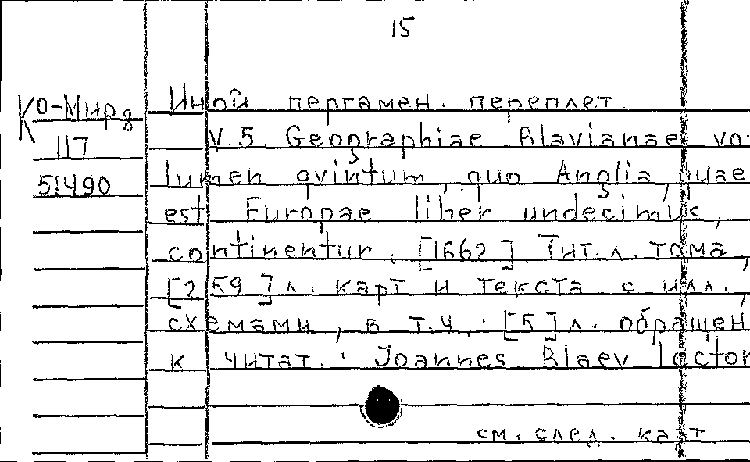 15
Ко-Мир8
117
51490
Иной пергамен. переплет.
V.5 Geographiae Blavianae vo-
lumen qvintum, quo Anglia, quae
est Europae liber undecimus,
continentur. [1662] Тит.л. тома,
[259] л. карт и текста с илл.,
схемами, в т.ч.: [5] л. обращен.
к читат.: Joannes Blaev lector
см. след. карт